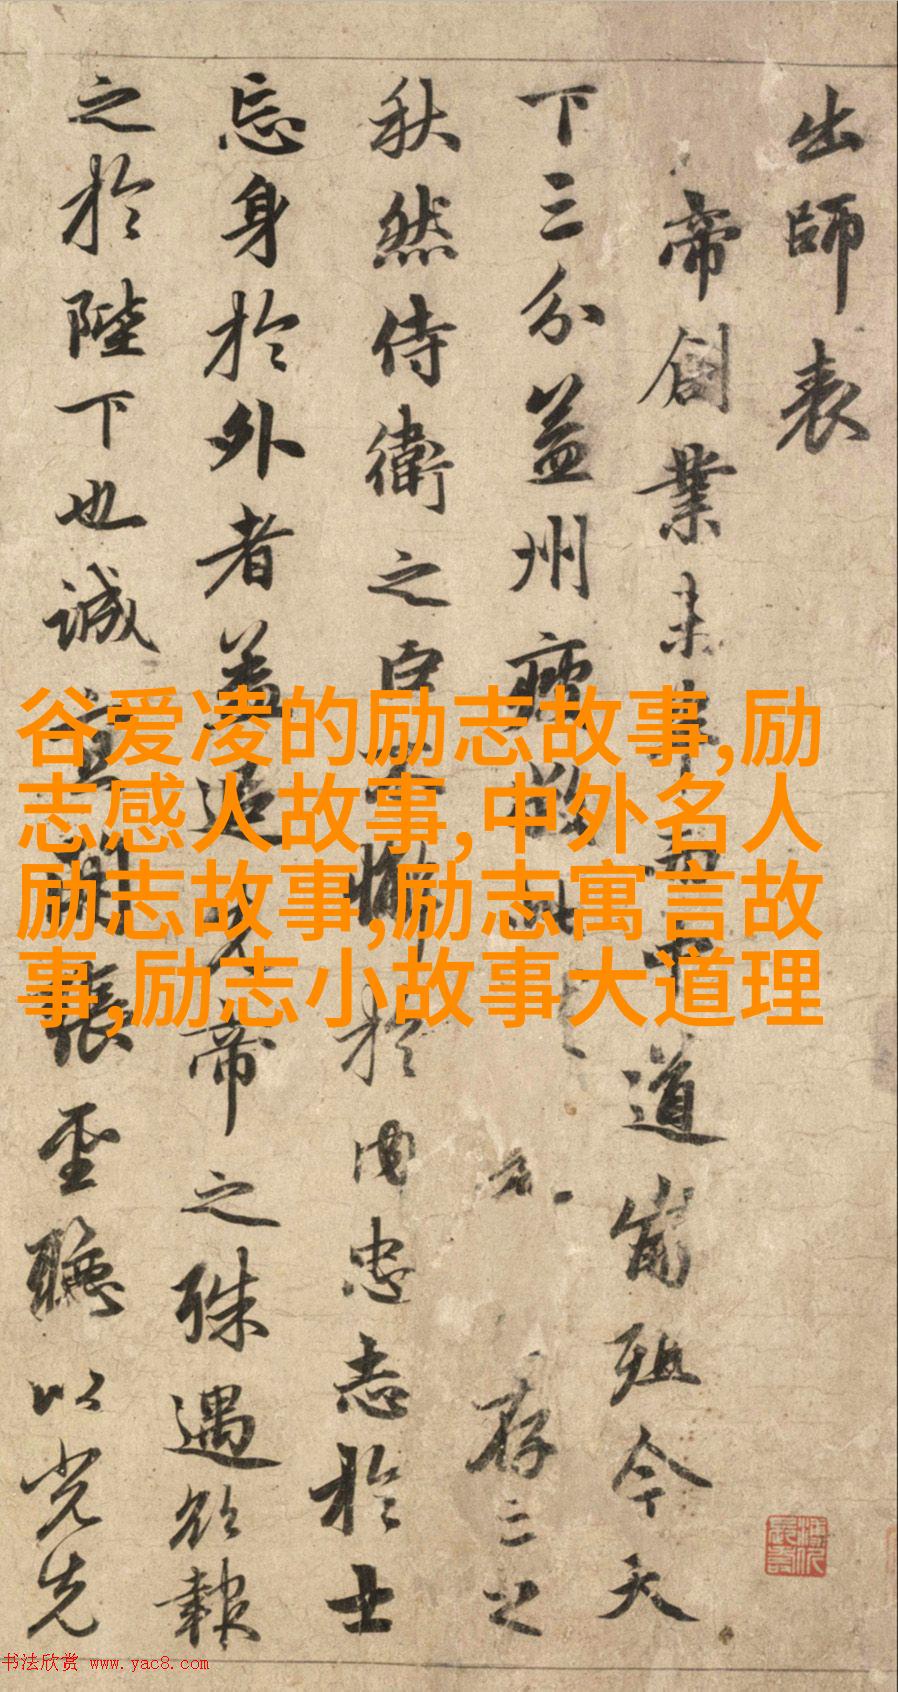 出師表
帝創業未半而中道崩殂今天
下三分益州疲此存之
秋然侍衛之臣不懈於内忠志於士
忘身於外者蓋追先帝之殊遇欲報
之於陛下也誠宜開張聖聽以光先
谷爱凌的励志故事,励
志感人故事,中外名人
励志故事,励志寓言故
事,励志小故事大道理
书法欣赏 www.yac8.com